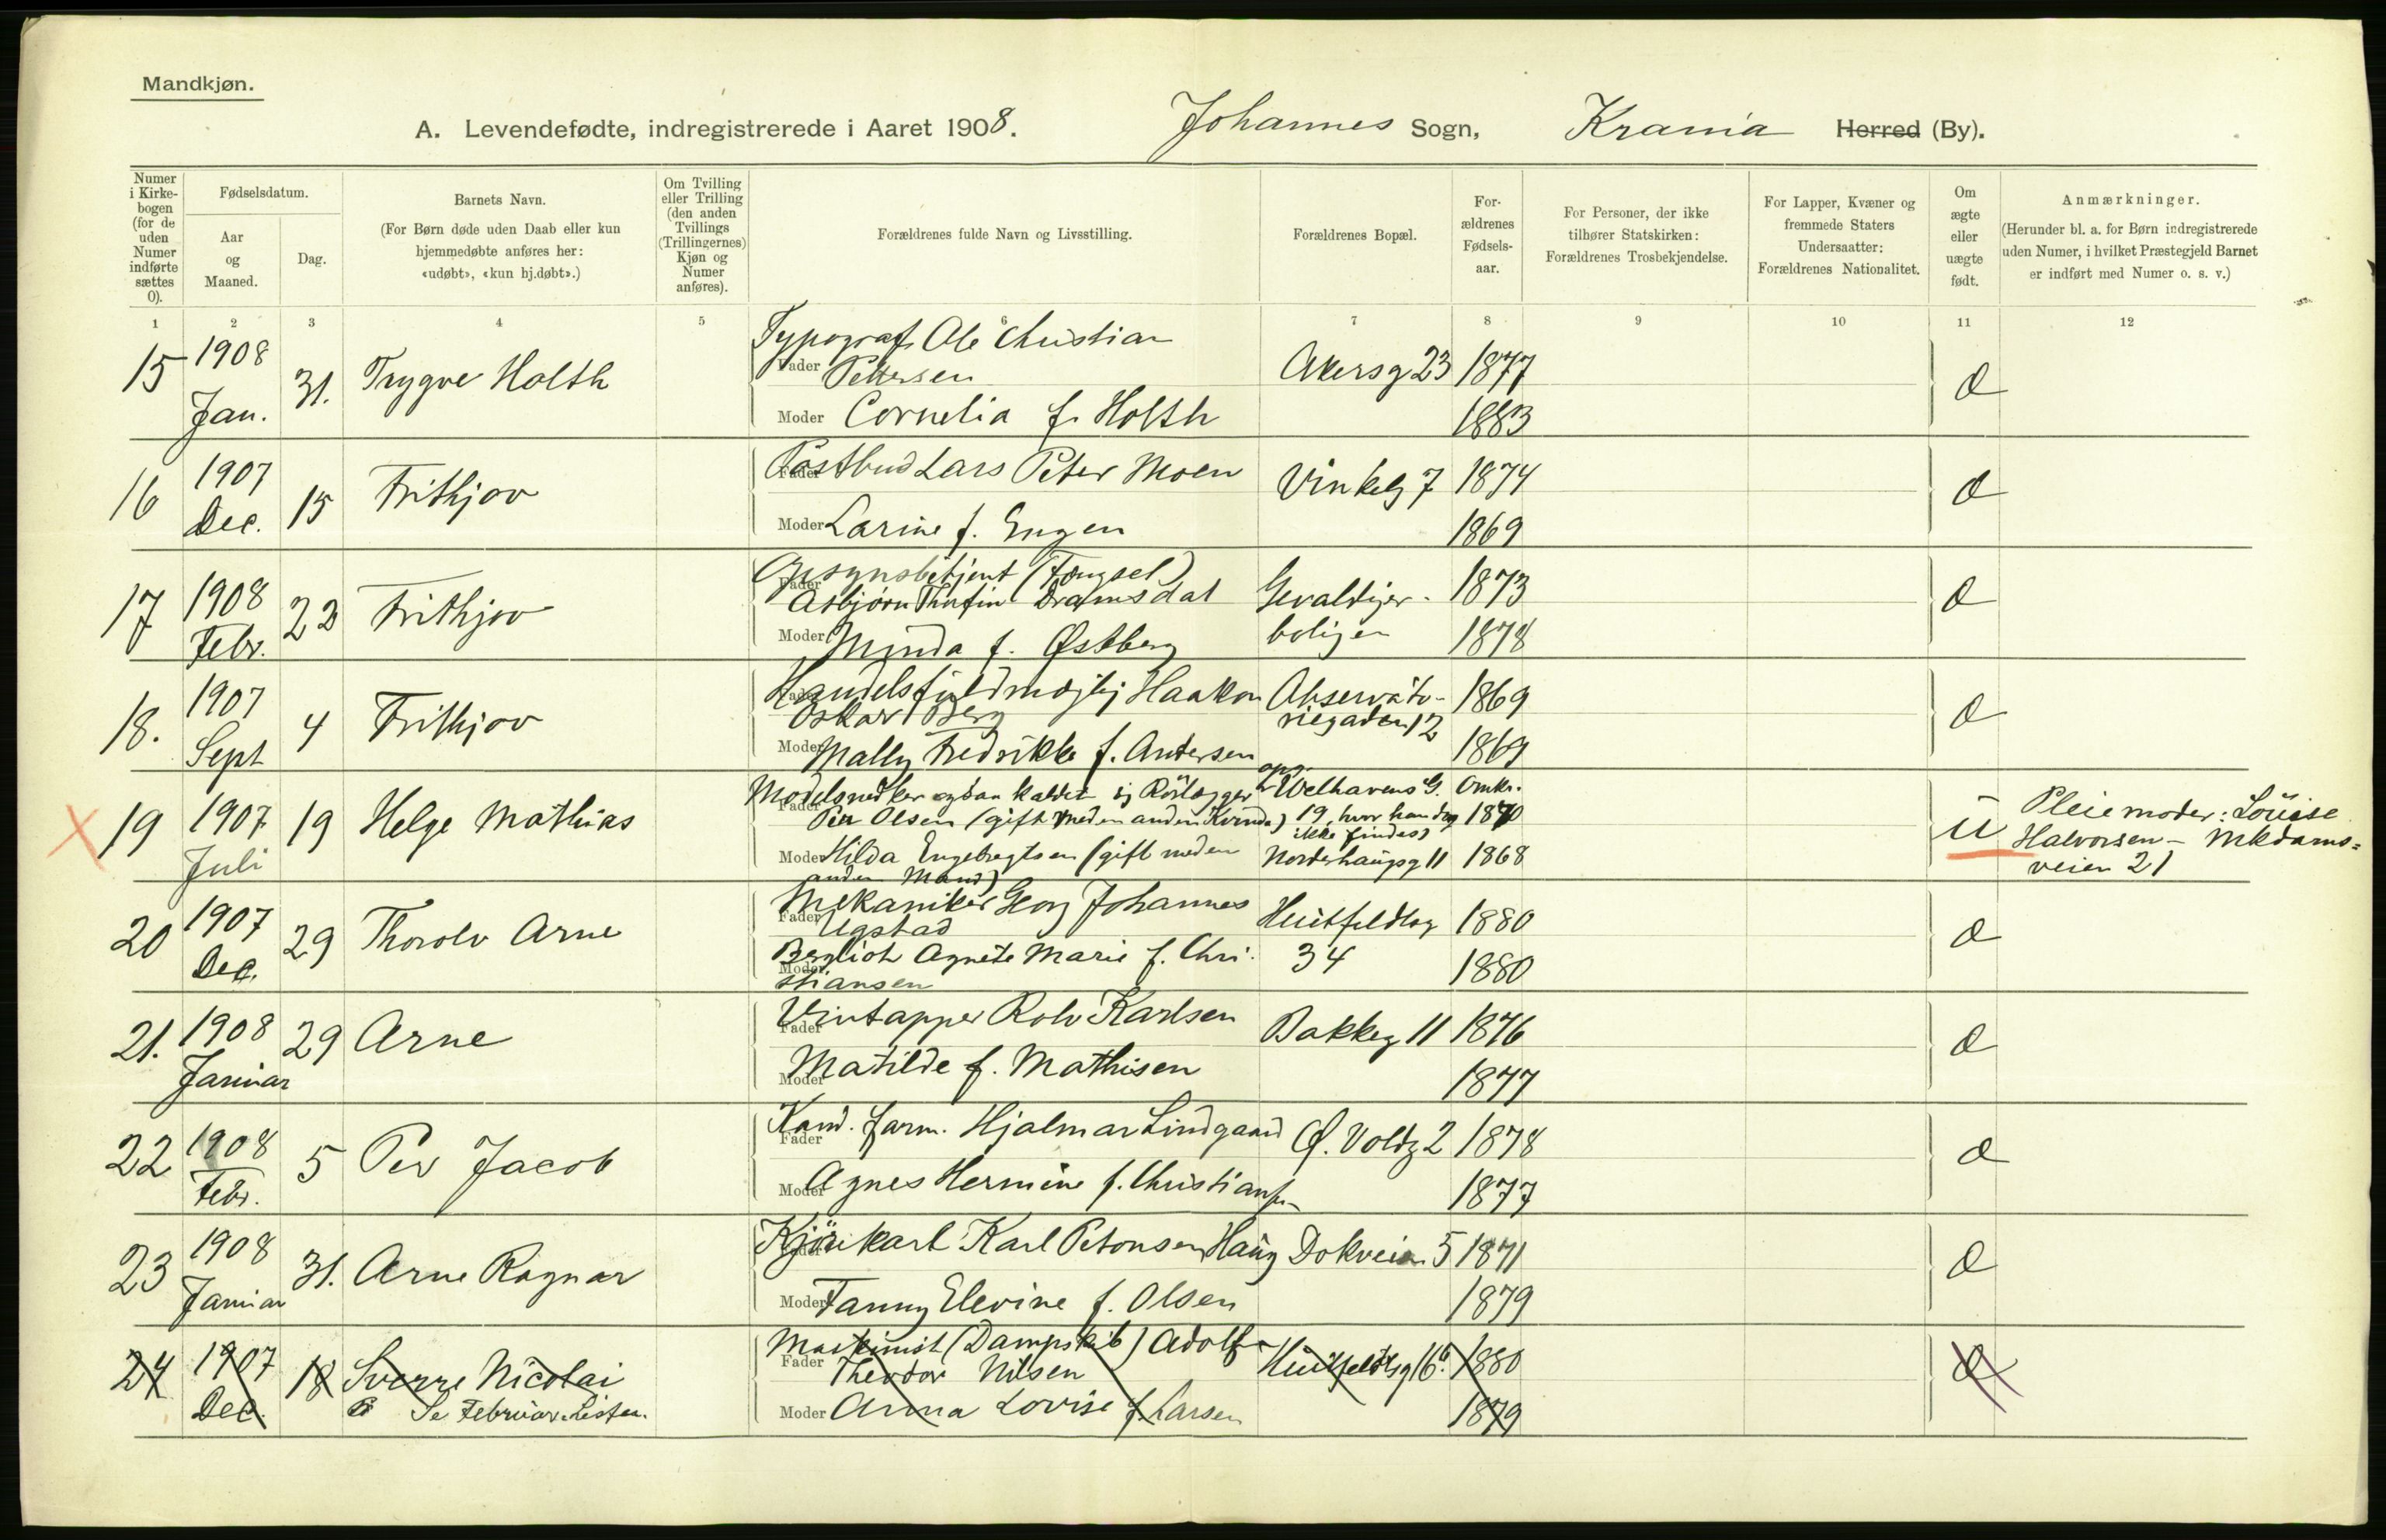 Mandkjøn.
A. Levendefødte, indregistrerede i Aaret 1908. Johannes Sogn, Krania Herred (By).
Numer i Kirke-bogen (for de uden Numer indførte sættes 0).
Fødselsdatum.
Aar og Maaned.
Dag.
Barnets Navn.
(For Børn døde uden Daab eller kun hjemmedøbte anføres her: «udøbt», «kun hj.døbt».)
Om Tvilling eller Trilling (den anden Tvillings (Trillingernes) Kjøn og Numer anføres).
Forældrenes fulde Navn og Livsstilling.
Forældrenes Bopæl.
For-ældrenes Fødsels-aar.
For Personer, der ikke tilhører Statskirken: Forældrenes Trosbekjendelse.
For Lapper, Kvæner og fremmede Staters Undersaatter: Forældrenes Nationalitet.
Om ægte eller uægte født.
Anmærkninger.
(Herunder bl. a. for Børn indregistrerede uden Numer, i hvilket Præstegjeld Barnet er indført med Numer o. s. v.)
1 2 3 4 5 6 7 8 9 10 11 12
15 1908 Jan. 31. Trygve Holth
Typograf Ole Christian
Fader Pettersen Akersg 23 1877 Æ
Moder Cornelia f. Holth 1883
16 1907 Dec. 15 Frithjov
Fader Postbud Lars Peter Moen Vinkelg 7 1874 Æ
Moder Larine f. Engen 1869
17 1908 Febr. 22 Frithjov
Opsynsbetjent (Fængsel)
Fader Asbjørn Thorfin Dramsdal Gevaldiger- 1873 Æ
Moder Minda f. Østberg boligen 1878
18. 1907 Sept 4 Frithjov
Fader Handelsfuldmægtig Haakon Observato- 1869 Æ
Oskar Berg riegaden 12
Moder Mally Fredrikke f. Andersen 1869
19 1907 Juli 19 Helge Mathias
Modelsnedker ogsaa kaldet sig Rørlægger opg. Welhavens G. Omkr.
Fader Peer Olsen (gift med en anden Kvinde) 19, hvor han dog 1870
ikke findes)
Moder Hilda Engebregtsen (gift med en Norderhaugsg 11 1868
anden Mand)
U Pleiemoder: Louise
Halvorsen - Mkdams=
veien 21
20 1907 Dec. 29 Thorolv Arne
Mekaniker Georg Johannes Huitfeldtsg 1880 Æ
Fader Ugstad
Bergliot Agnete Marie f. Chri- 34 1880
Moder stiansen
21. 1908 Januar 29 Arne
Fader Vintapper Rolv Karlsen Bakkeg 11 1876 Æ
Moder Matilde f. Mathisen 1877
22 1908 Febr. 5 Per Jacob
Fader Kand. farm. Hjalmar Lindgaard Ø. Voldg 2 1878 Æ
Moder Agnes Hermine f. Christiansen 1877
23 1908 Januar 31. Arne Ragnar
Fader Kjörekarl Karl Petonsen Haug Dokveien 5 1871 Æ
Moder Fanny Elevine f. Olsen 1879
24 1907 Dec. 18 Sverre Nicolai
Se Februar-Listen.
Maskinist (Dampskib) Adolf Huitfeldtsg 16b. 1880 Æ
Fader Theodor Nilsen
Moder Anna Lovise f. Larsen 1879